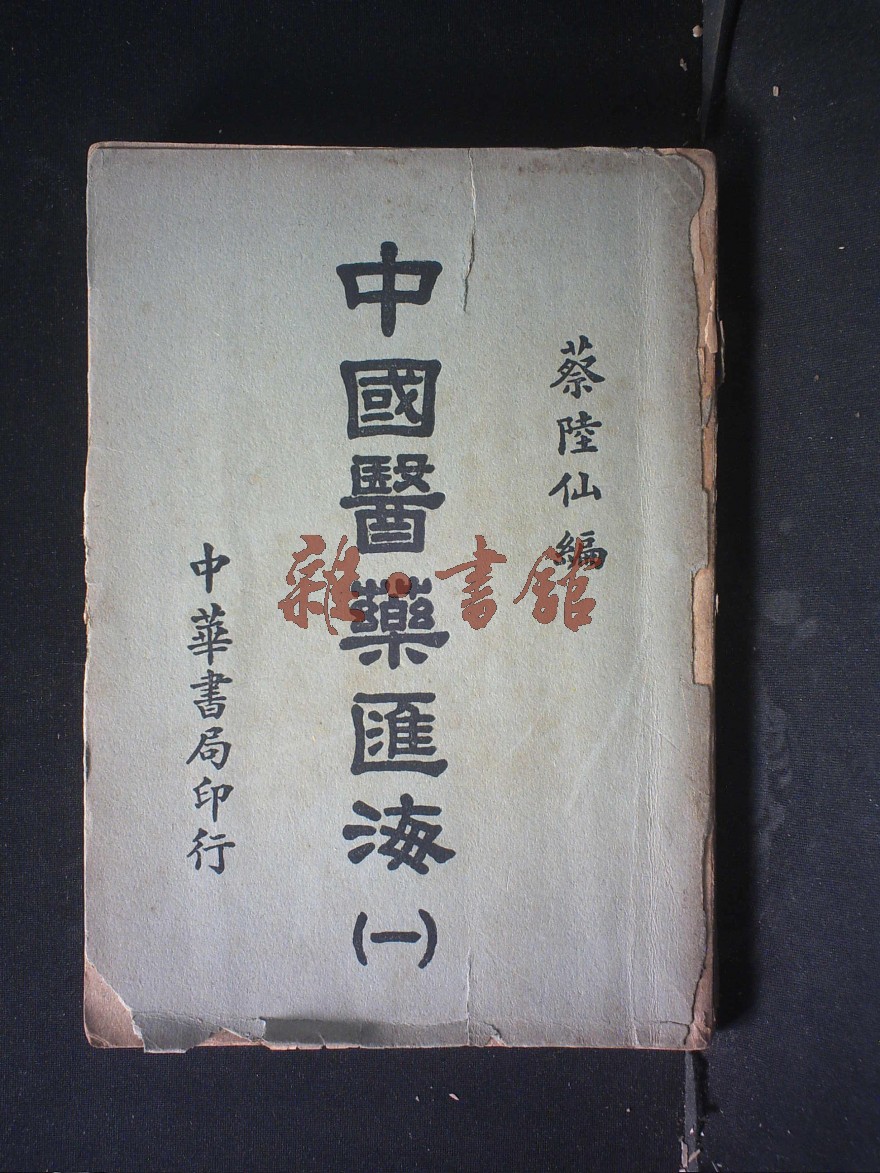 蔡陸仙編
中國醫藥匯海(一)
中華書局印行
雜·書館